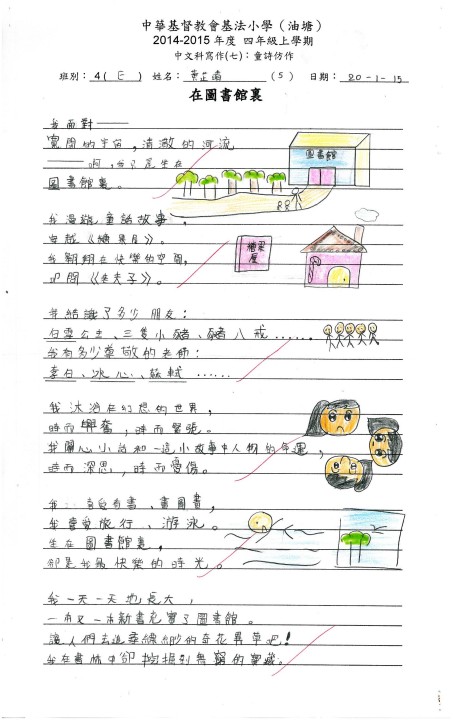 中華基督教會基法小學（油塘）
2014-2015 年度 四年級上學期
中文科寫作(七)：童詩仿作
班別： 4 ( E ) 姓名： 黄芷 ( 5 ) 日期： 20-1-15
在圖書館裏
我面對——
寬闊的宇宙，清澈的河流
——啊，我只是坐在
圖書館裏。
圖書館
我漫遊童話故事，
穿越《糖果屋》。
我翱翔在快樂的空間，
叩開《老夫子》。
糖果屋
我結識了多少朋友：
白雪公主、三隻小豬、豬八戒……
我有多少尊敬的老師：
李白、冰心、蘇軾……
我沐浴在幻想的世界，
時而興奮，時而緊張。
我關心小說和一這小故事中人物的命運，
時而深思，時而憂傷。
我 看書、畫圖畫，
我喜愛旅行、游泳。
坐在圖書館裏，
卻是我最快樂的時光。
我一天一天地長大，
一本又一本新書充實了圖書館。
讓人們去追尋繽紛的奇花異草吧！
我在書林中卻挖掘到無窮的寶藏。